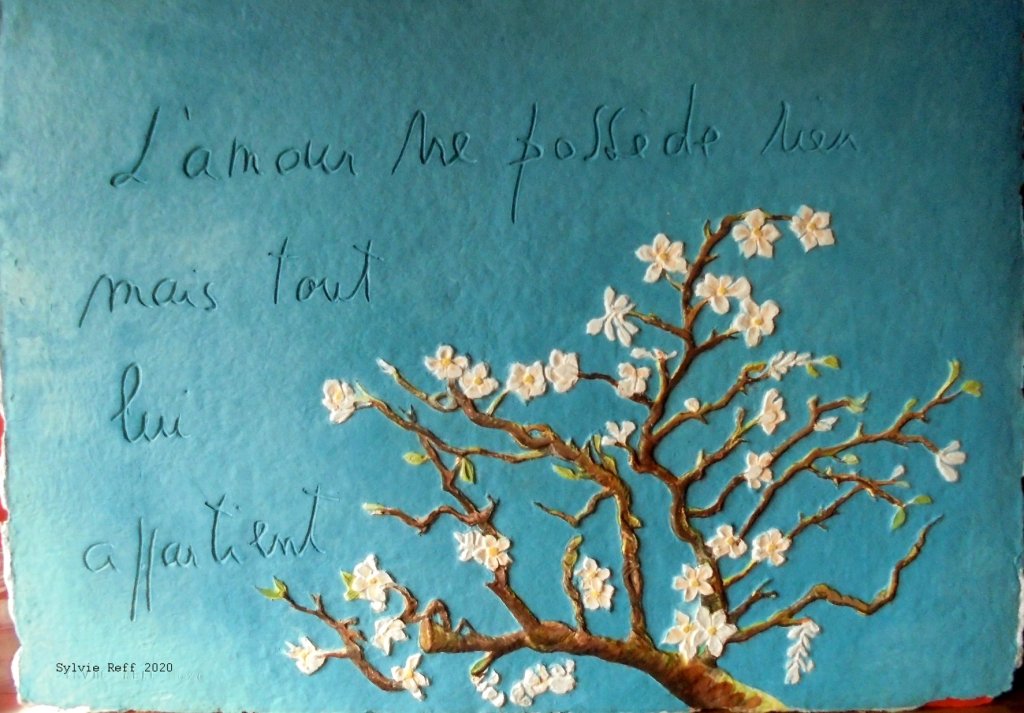 L'amour ne possède rien
mais tout
lui
appartient
Sylvie Reff 2020